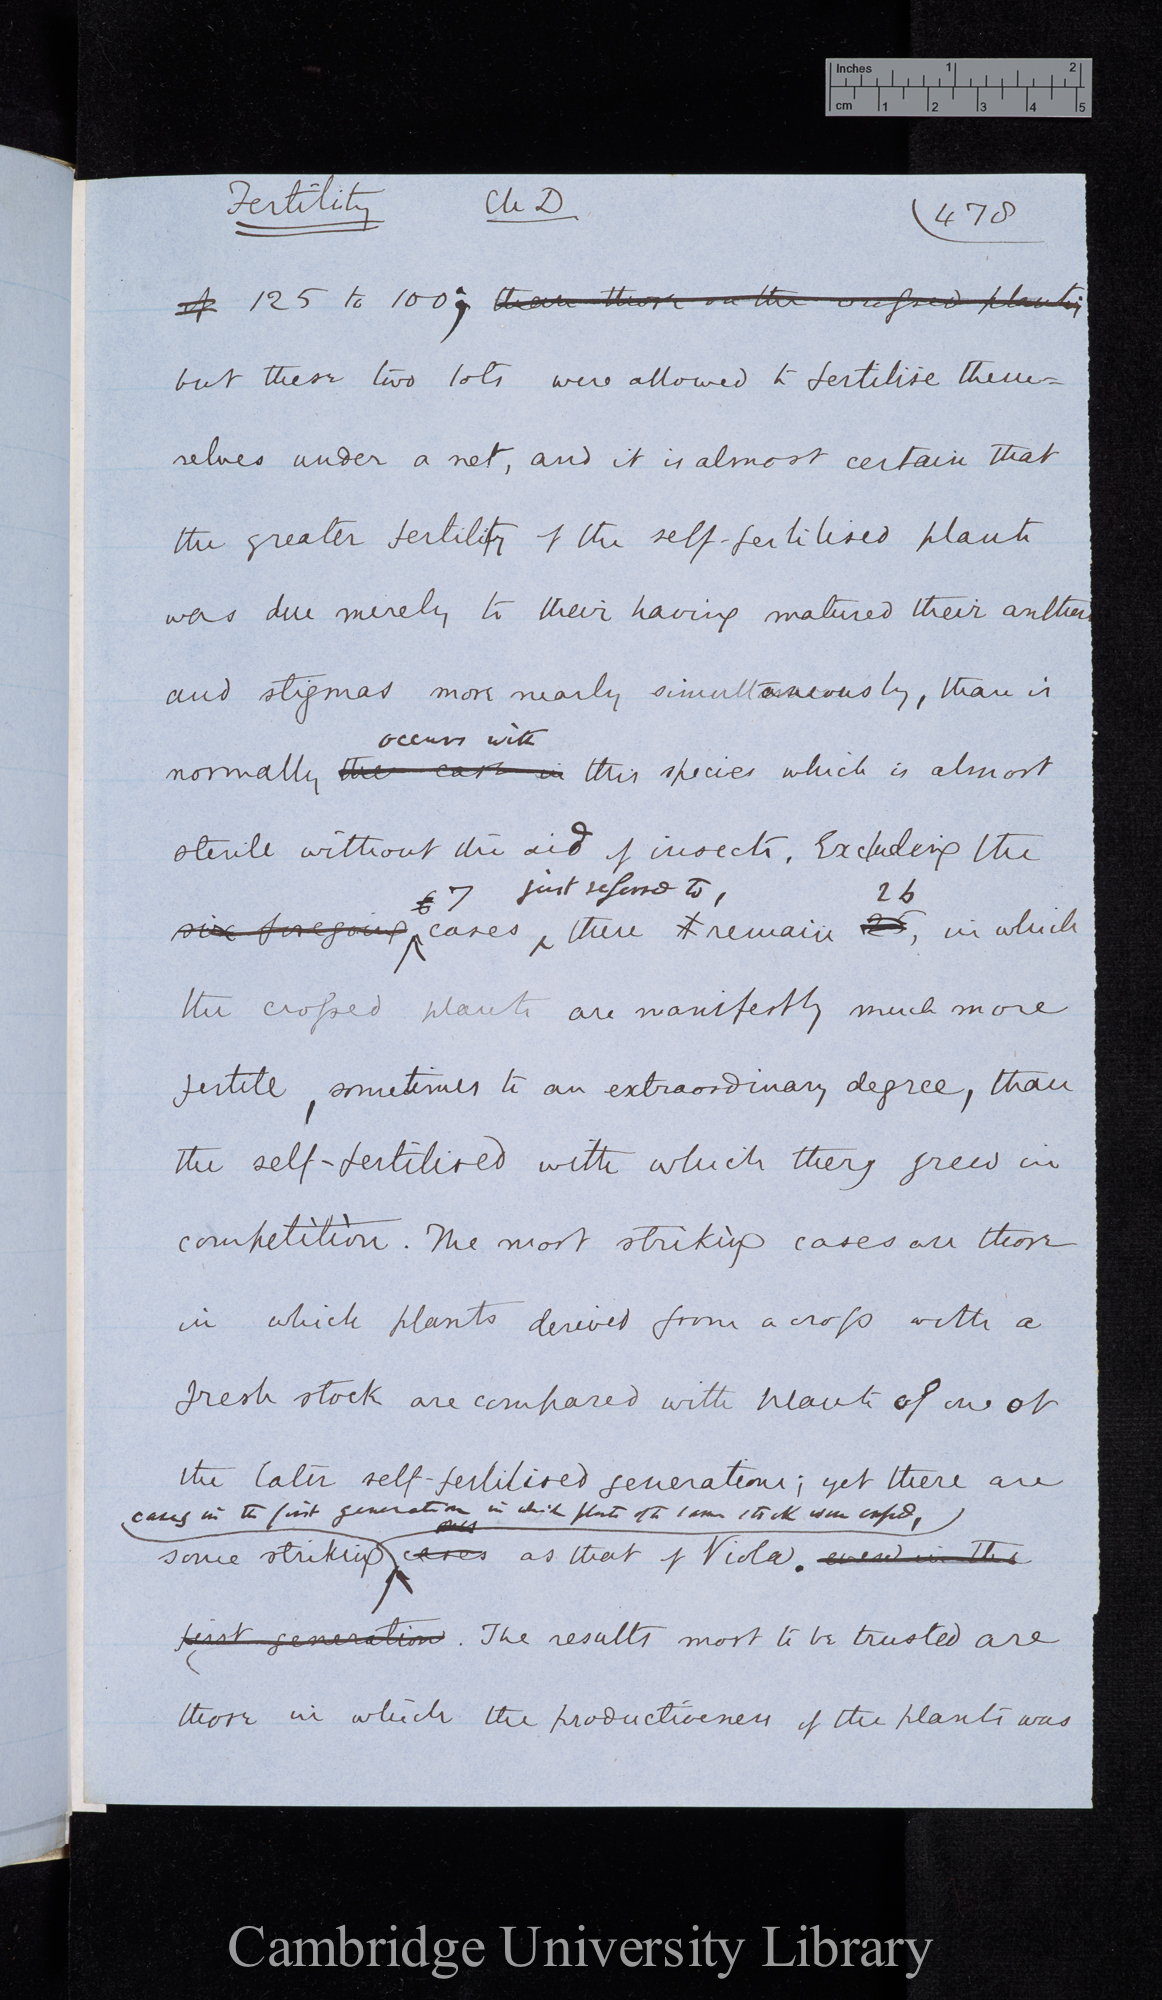 Inches 1 2
cm 1 2 3 4 5
Fertility Ch D 478
of 125 to 100; than those on the crossed plants;
but these two lots were allowed to fertilise them-
selves under a net, and it is almost certain that
the greater fertility of the self-fertilised plants
was due merely to their having matured their anthers
and stigmas more nearly simultaneously, than is
occurs with
normally the case in this species which is almost
sterile without the aid of insects. Excluding the
6 7 just referred to, 26
six foregoing cases, there remain 25, in which
the crossed plants are manifestly much more
fertile, sometimes to an extraordinary degree, than
the self-fertilised with which they grew in
competition. The most striking cases are those
in which plants derived from a cross with a
fresh stock are compared with plants of one of
the later self-fertilised generations; yet there are
cases in the first generation in which plants of the same stock were crossed,
ones
some striking cases as that of Viola. even in the
first generation. The results most to be trusted are
those in which the productiveness of the plants was
Cambridge University Library